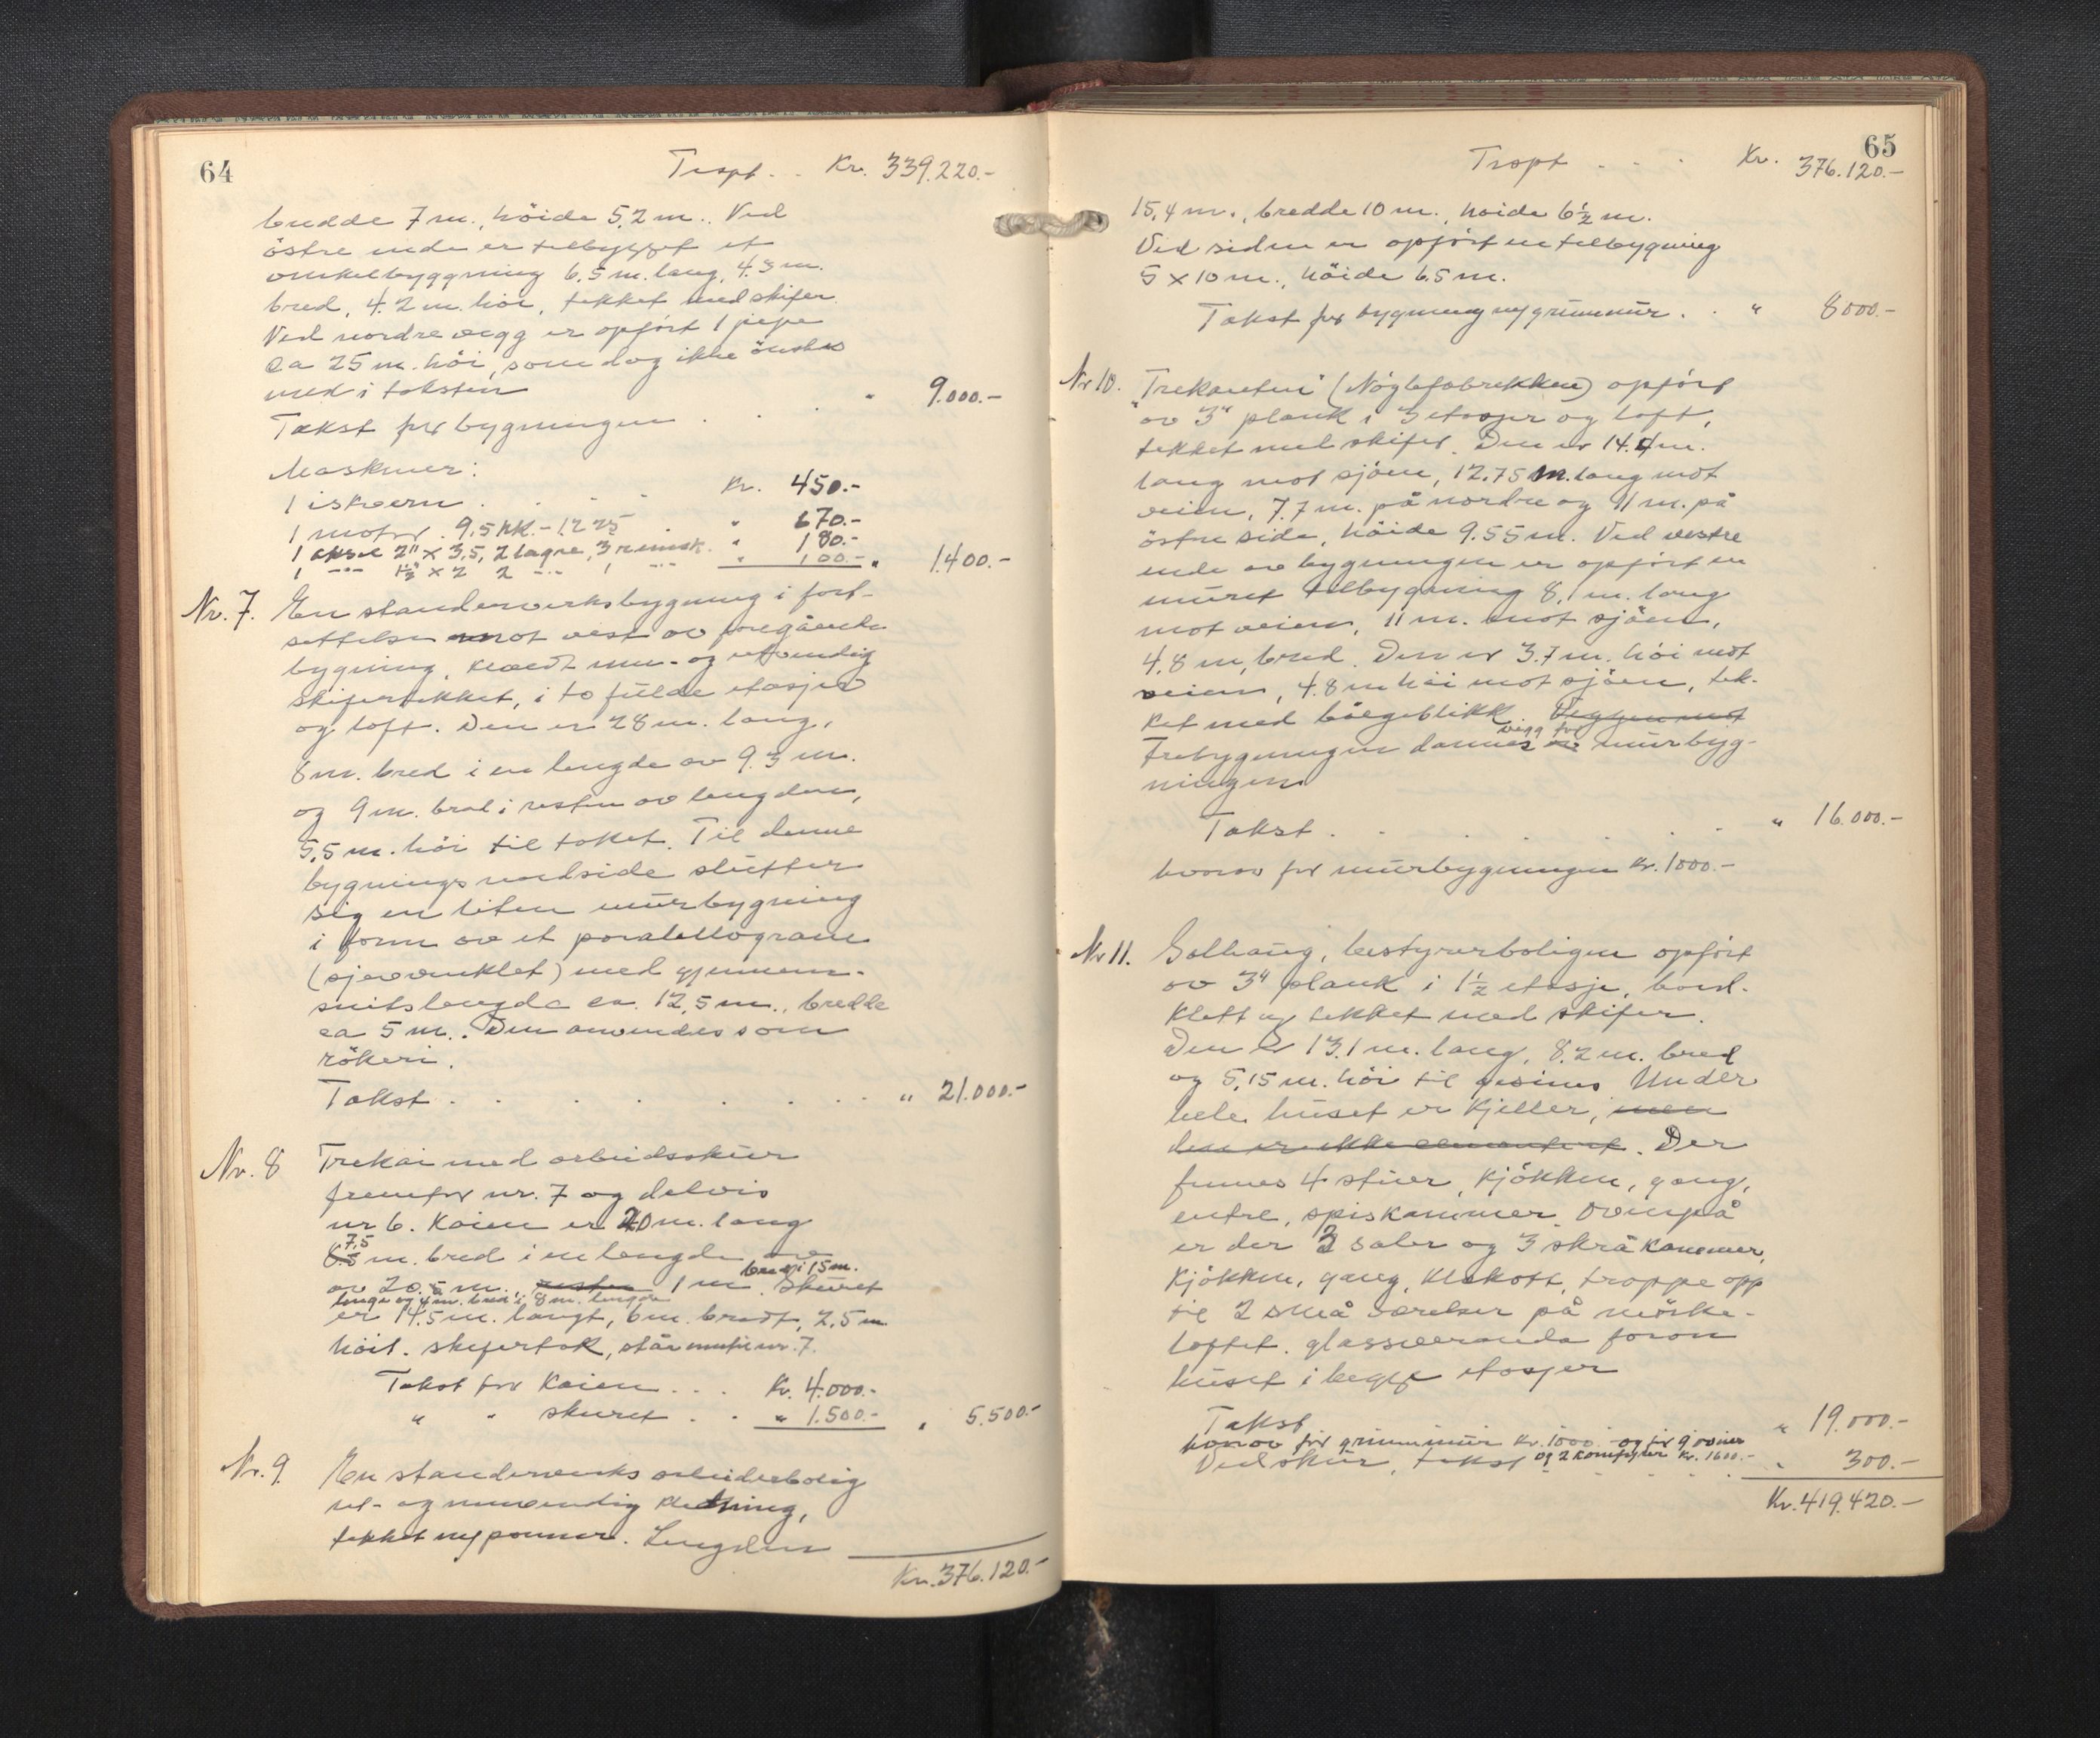 64
Trspt. . . Kr. 339.220.-
bredde 7 m., höide 5,2 m.. Ved
östre ende er tilbygget et
vinkelbyggning 6.5 m. lang, 4.3 m.
bred, 4.2 m. höi, tekket med skifer.
Ved nordre vegg er opført 1 pipe
ca 25 m. höi, som dog ikke önskes
med i taksten
Takst for bygningen . . . " 9.000.-
Maskiner:
1 iskvern . . . Kr. 450.-
1 motor. 9,5 HK. - 1225 . " 670.-
1 aksel 2" x 3,5, 2 lagre, 3 remsk. " 180.-
1 -"- 1½ x 2 2 -"- 1 -"- " 100.- " 1400.-
Nr. 7. En standerverksbygning i fort-
settelse mot vest av foregående
bygning, klædt inn- og utvendig
skifertekket, i to fulde etasjer
og loft. Den er 28 m. lang,
8 m. bred i en lengde av 9.3 m.
og 9 m. bred i resten av lengden,
5,5 m. höi til taket. Til denne
bygnings nordside slutter
sig en liten mürbygning
i form av et paralellogram
(sjevvinklet) med gjennem-
snitslengde ca. 12,5 m., bredde
ca 5 m.. Den anvendes som
rökeri.
Takst . . . . . . . " 21.000.-
Nr. 8 Trekai med arbeidsskür
fremfor nr. 7 og delvis
nr 6. Kaien er 20 m. lang
7,5
6.5 m. bred i en lengde av
bred i 15 m.
av 20.5 m., resten 1 m. Sküret
lengde og 4 m. bred i 8 m. lengde
er 14.5 m. langt, 6 m. bredt, 2,5 m
höit. skifertak, står inntil nr. 7.
Takst for Kaien . . . Kr. 4.000.-
" " skuret . . " 1.500.- " 5.500.-
Nr. 9. En standerverks arbeiderbolig
ut- og innvendig kledning,
tekket m/ panner. Lengden
Kr. 376.120.-
65
Trspt . . . Kr. 376.120.-
15,4 m., bredde 10 m., höide 6½ m.
Ved siden er opført en tilbygning
5 x 10 m., höide 6.5 m.
Takst for bygning m/ grünnmür . . " 8000.-
Nr 10. "Trekanten" (Nöglefabrikken) opført
av 3" plank i 3 etasjer og loft,
tekket med skifer. Den er 14.4 m.
lang mot sjöen, 12.75 m. lang mot
veien, 7.7 m. på nordre og 11 m. på
östre side, höide 9.55 m. Ved vestre
ende av bygningen er opført en
müret tilbygning 8,1 m. lang
mot veien, 11 m. mot sjöen,
4,8 m, bred. Den er 3.7 m. höi mot
veien, 4.8 m höi mot sjöen, tek-
ket med bölgeblikk. Veggen mot
vegg for
Trebygningen dannes av mürbyg-
ningen
Takst . . . . . . " 16.000.-
hvorav for mürbygningen Kr. 1000.-
Nr 11. Solhaüg, bestyrerboligen opført
av 3" plank i 1½ etasje, bord-
klett og tekket med skifer.
Den er 13.1 m. lang, 8.2 m. bred
og 5,15 m. höi til gesims. Under
hele hüset er Kjeller, men
den er ikke cementert. Der
finnes 4 stüer, Kjökken, gang,
entre, spiskammer. Ovenpå
er der 3 saler og 3 skråkammer,
Kjökken, gang, Kleskott, trappe opp
til 2 små værelser på mörke-
loftet. glassveranda foran
hüset i begge etasjer
Takst . . . . " 19.000.-
hvorav for grünnmür Kr. 1000.- og for 9 ovner
og 2 komfyrer Kr. 1600.-
Vedskür, takst . . . . . " 300.-
Kr. 419.420.-